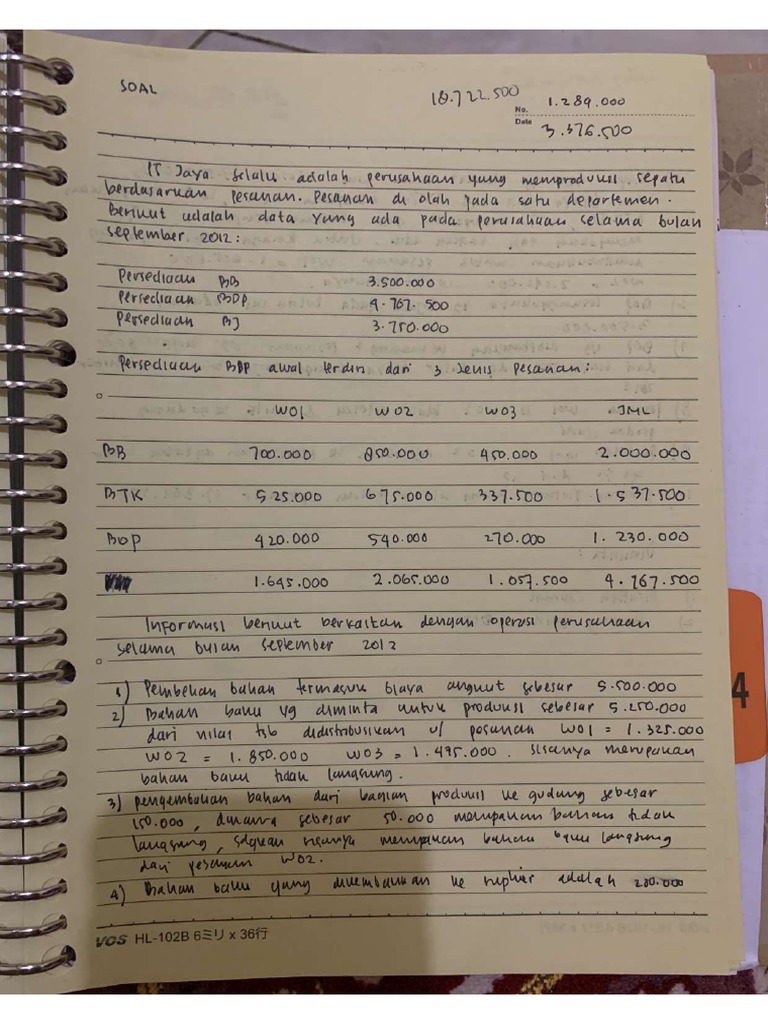 SOAL
18.722.500
No. 1.289.000
Date 3.376.500
PT Jaya Selalu adalah perusahaan yang memproduksi sepatu
berdasarkan pesanan. Pesanan di olah pada satu departemen.
Berikut adalah data yang ada pada perusahaan selama bulan
september 2012:
Persediaan BB 3.500.000
Persediaan BDP 4.767.500
Persediaan BJ 3.750.000
Persediaan BDP awal terdiri dari 3 Jenis Pesanan:
W01 W02 W03 JML
BB 700.000 850.000 450.000 2.000.000
BTK 525.000 675.000 337.500 1.537.500
BOP 420.000 540.000 270.000 1.230.000
1.645.000 2.065.000 1.057.500 4.767.500
Informasi berikut berkaitan dengan operasi perusahaan
selama bulan september 2012
1) Pembelian bahan termasuk biaya angkut sebesar 5.500.000
2) Bahan baku yg diminta untuk produksi sebesar 5.250.000
dari nilai tsb didistribusikan u/ pesanan W01 = 1.325.000
W02 = 1.850.000 W03 = 1.495.000. Sisanya merupakan
bahan baku tidak langsung.
3) pengembalian bahan dari bagian produksi ke gudang sebesar
150.000, dimana sebesar 50.000 merupakan bahan tidak
langsung, sedangkan sisanya merupakan bahan baku langsung
dari pesanan W02.
4) Bahan baku yang dikembalikan ke suplier adalah 200.000
VOS HL-102B 6ミリ x 36行
4